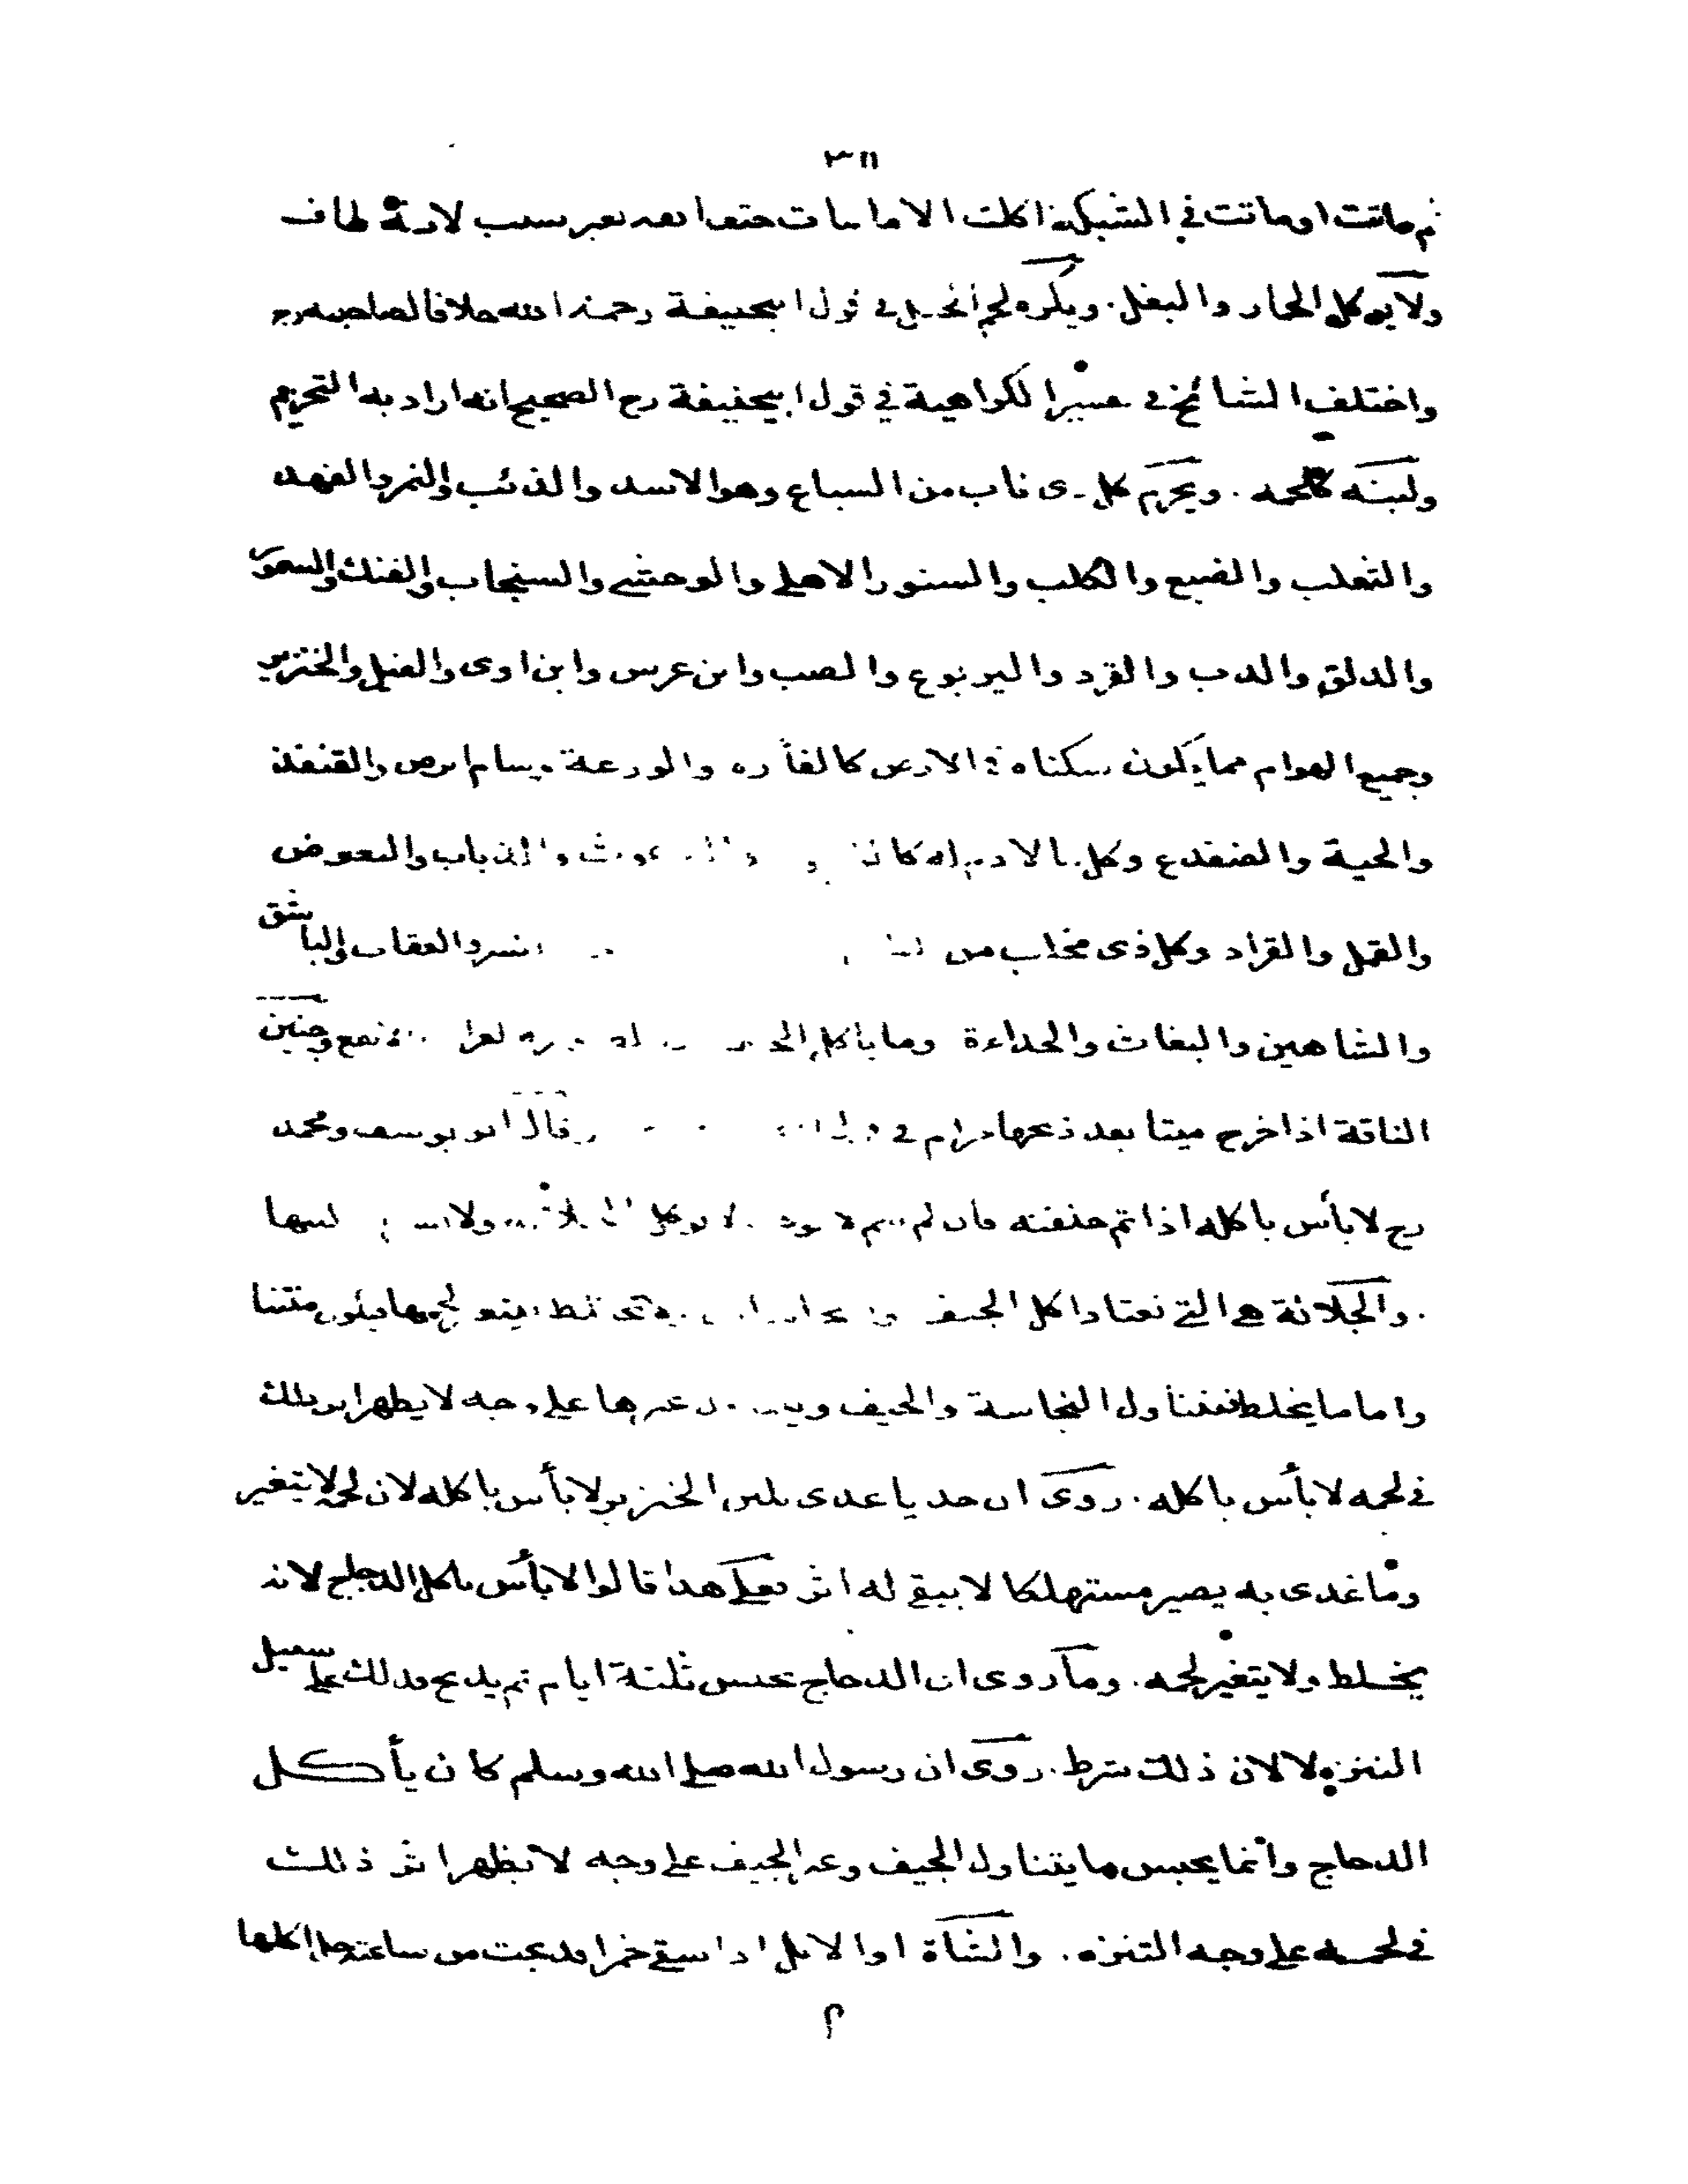 ثم ماتت او ماتت في الشبكة اكلت الا ما مات حتف انفه بغير سبب لانه طاف
ولا يوكل الحمار والبغل. ويكره لحم الخيل في قول ابيحنيفة رحمه الله خلافا لصاحبيه رح
واختلف المشائخ في الكراهية في قول ابيحنيفة رح الصحيح انه اراد به التحريم
ولبنه كلحمه. ويحرم كل ذى ناب من السباع وهو الاسد والذئب والنمر والفهد
والثعلب والضبع والكلب والسنور الاهلي والوحشي والسنجاب والفنك والسمور
والدلق والدب والقرد واليربوع والضب وابن عرس وابن اوى والفيل والخنزير
وجميع الهوام مما يكون سكناه في الارض كالفأرة والوزغة وسام ابرص والقنفذ
والحية والضفدع وكل ما لا دم له والذباب والبعوض
والقمل والقراد وكل ذى مخلاب من النسر والعقاب والباشق
والشاهين والبغاث والحداءة وما يأكل وجنين
الناقة اذا خرج ميتا بعد ذبحها حرام في وقال ابو يوسف ومحمد
رح لا بأس باكله اذا تم خلقته فان لم يتم لا يوكل الجلالة ولا لبنها
.والجلالة هي التي تعتاد اكل الجيف لحمها فيكون منتنا
واما ما يخلط فيتناول النجاسة والجيف غيرها على وجه لا يظهر اثر ذلك
في لحمه لا بأس باكله. روى ان جديا غدى بلبن الخنزير لا بأس باكله لان لحمه لا يتغير
وما غدى به يصير مستهلكا لا يبقى له اثر فعلى هذا قالوا لا بأس باكل الدجاج لانه
يخلط ولا يتغير لحمه. وما روى ان الدجاج تحبس ثلثة ايام ثم يذبح فذلك على سبيل
التنزه لا لان ذلك شرط. روى ان رسول الله صلى الله وسلم كان يأكل
الدجاج وانما يحبس ما يتناول الجيف وغير الجيف على وجه لا يظهر اثر ذلك
في لحمه على وجه التنزه. والشاة او الابل اذا سقي خمرا فذبحت من ساعته حل اكلها